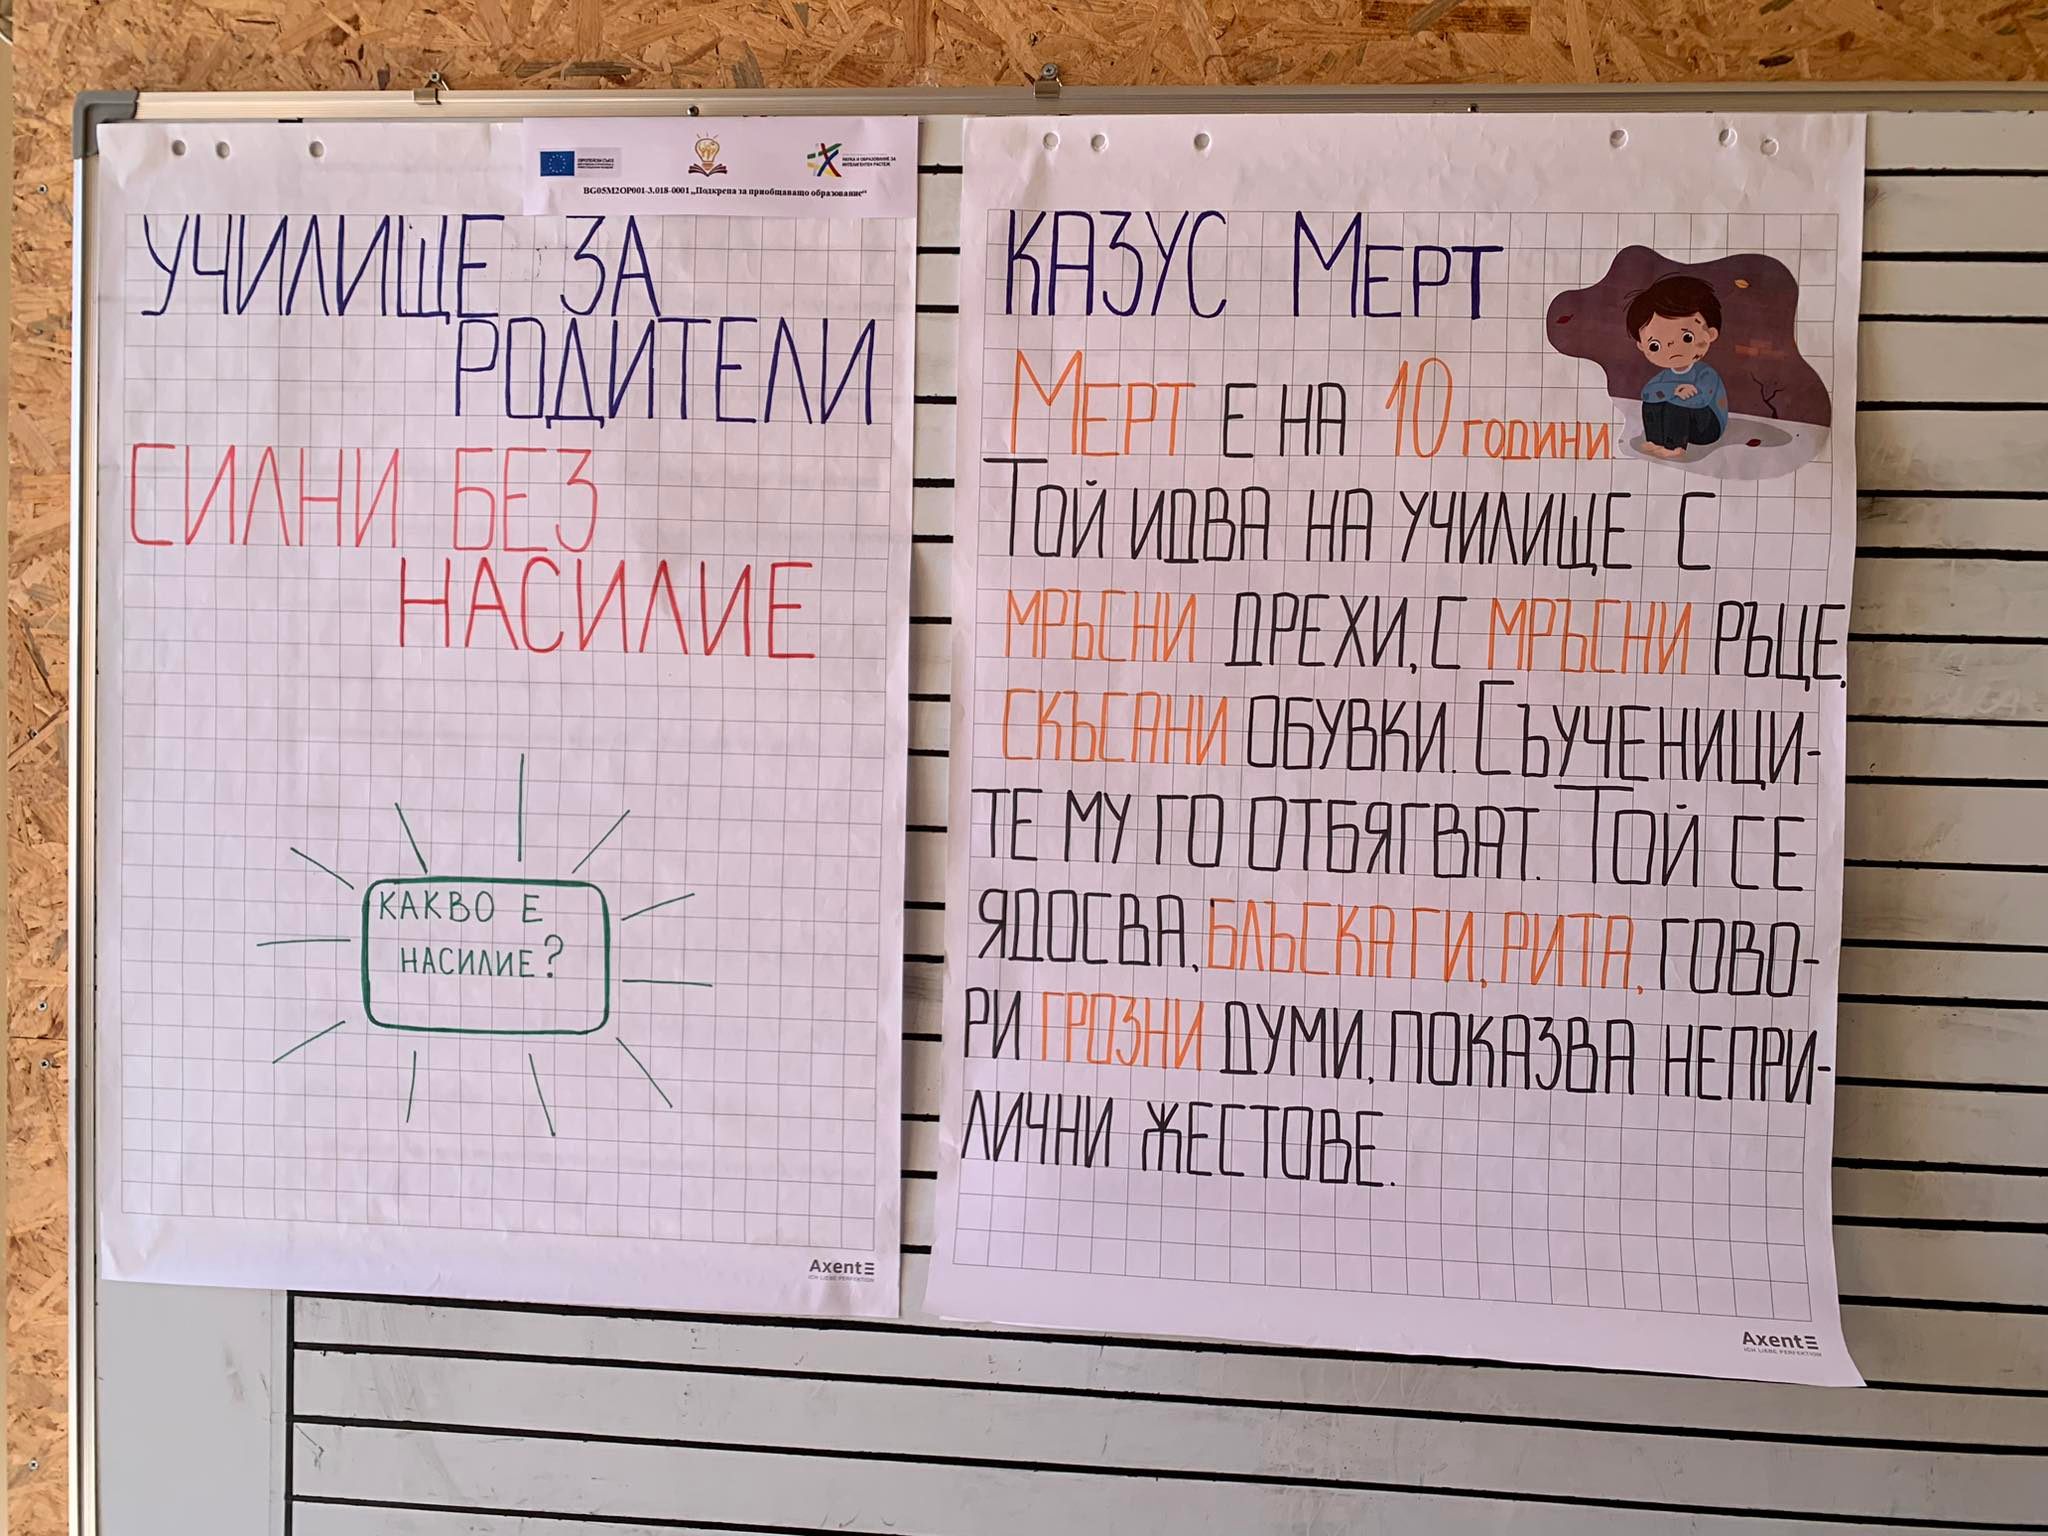 ЕВРОПЕЙСКИ СЪЮЗ
НАУКА И ОБРАЗОВАНИЕ ЗА
ИНТЕЛИГЕНТЕН РАСТЕЖ
BG05M2OP001-3.018-0001 „Подкрепа за приобщаващо образование“
УЧИЛИЩЕ ЗА
РОДИТЕЛИ
СИЛНИ БЕЗ
НАСИЛИЕ
КАКВО Е
НАСИЛИЕ?
Axent
ICH LIEBE PERFEKTION
КАЗУС МЕРТ
МЕРТ Е НА 10 ГОДИНИ.
ТОЙ ИДВА НА УЧИЛИЩЕ С
МРЪСНИ ДРЕХИ, С МРЪСНИ РЪЦЕ,
СКЪСАНИ ОБУВКИ. СЪУЧЕНИЦИ-
ТЕ МУ ГО ОТБЯГВАТ. ТОЙ СЕ
ЯДОСВА, БЛЪСКА ГИ, РИТА, ГОВО-
РИ ГРОЗНИ ДУМИ, ПОКАЗВА НЕПРИ-
ЛИЧНИ ЖЕСТОВЕ.
Axent
ICH LIEBE PERFEKTION